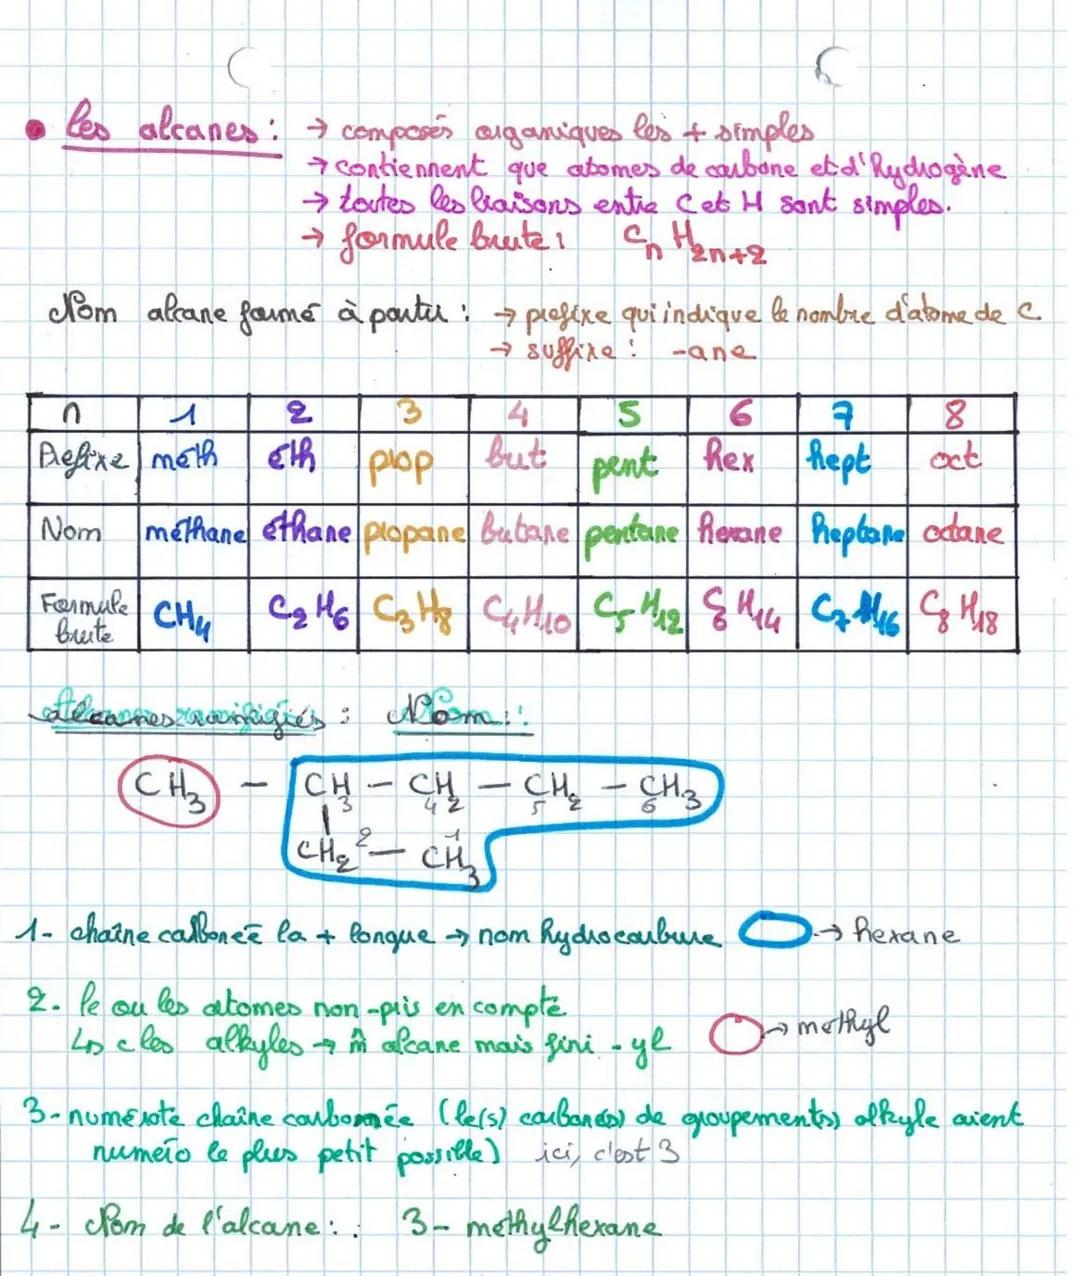 • les alcanes : → composés organiques les + simples
→ contiennent que atomes de carbone et d'hydrogène
→ toutes les liaisons entre C et H sont simples.
→ formule brute : CnH2n+2
Nom alcane formé à partir : → prefixe qui indique le nombre d'atome de C
→ suffixe : -ane
n 1 2 3 4 5 6 7 8
Prefixe méth éth prop but pent hex hept oct
Nom méthane éthane propane butane pentane hexane heptane octane
Formule brute CH4 C2H6 C3H8 C4H10 C5H12 C6H14 C7H16 C8H18
alcanes ramifiés : Nom :
CH3 - CH - CH2 - CH2 - CH3
3 4 5 6
CH2 2 - CH3 1
1- chaîne carbonée la + longue → nom hydrocarbure → hexane
2. le ou les atomes non-pris en compte
↳ c les alkyles → m̂ alcane mais fini - yl → methyl
3- numérote chaîne carbonnée (le(s) carbone(s) de groupement(s) alkyle aient
numéro le plus petit possible) ici, c'est 3
4- Nom de l'alcane : 3- methylhexane